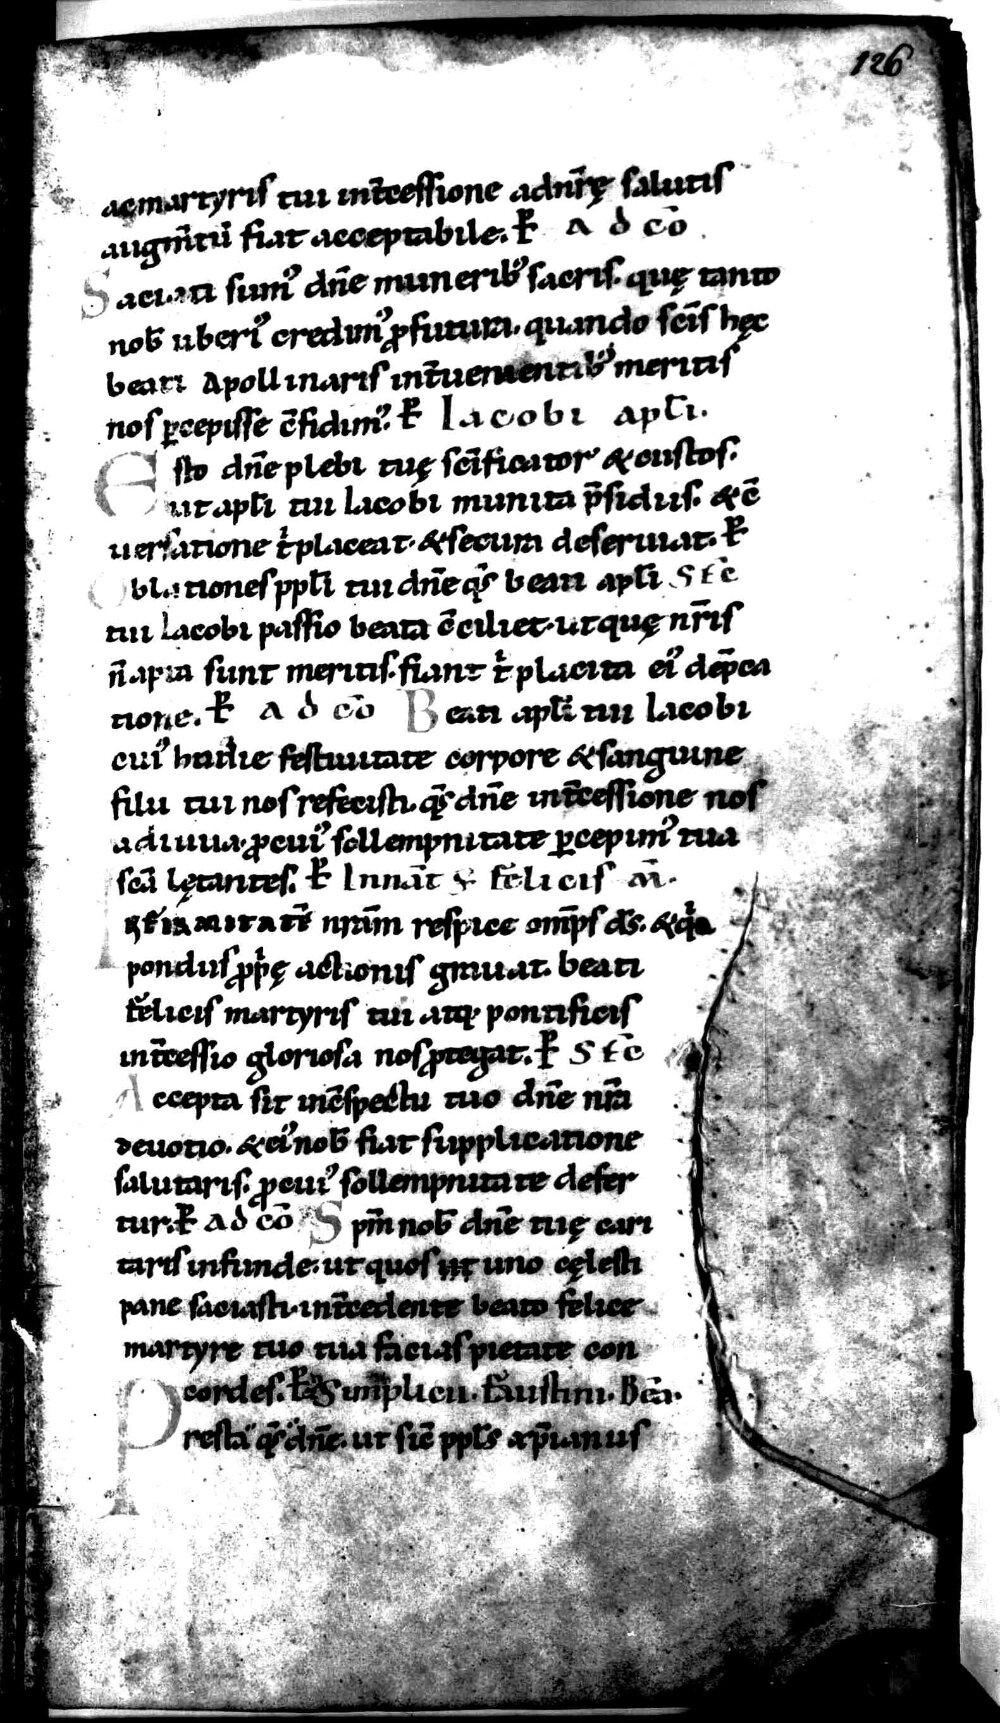 126
ac martyris tui int̄cessione ad nr̄ę salutis
augm̄tū fiat acceptabile. ꝶ AD CŌ
Saciati sumꝰ dn̄e muneribꝰ sacris. quę tanto
nob̄ uberiꝰ credimꝰ ꝓfutura. quando sc̄is hęc
beati Apollinaris int̄uenientibꝰ meritis
nos ꝑcepisse c̄fidimꝰ. ꝶ Iacobi apl̄i.
Esto dn̄e plebi tuę sc̄ificator & custos.
ut apl̄i tui Iacobi munita p̄sidiis. & c̄
uersatione t̍ placeat. & secura deseruiat. ꝶ
Oblationes ppl̄i tui dn̄e qs̄ beati apl̄i STC̄
tui Iacobi passio beata c̄ciliet. ut quę nr̄is
n̄ apta sunt meritis. fiant t̍ placita eiꝰ dep̄ca
tione. ꝶ AD CŌ Beati apl̄i tui Iacobi
cuiꝰ hodie festiuitate corpore & sanguine
filii tui nos refecisti. qs̄ dn̄e int̄cessione nos
adiuua. ꝓ cuiꝰ sollempnitate ꝑcepimꝰ tua
sc̄a lętantes. ꝶ In nat̄ S felicis m̄.
Infirmitatē nr̄am respice om̄ps ds̄. & q̍a
pondus ꝓp̍ę actionis grauat. beati
felicis martyris tui atq; pontificis
int̄cessio gloriosa nos ꝓtegat. ꝶ STC̄
Accepta sit in c̄spectu tuo dn̄e nr̄a
deuotio. & eiꝰ nob̄ fiat supplicatione
salutaris. ꝓ cuiꝰ sollempnitate defer
tur. ꝶ AD CŌ Spm̄ nob̄ dn̄e tuę cari
taris infunde. ut quos uno cęlesti
pane saciasti. int̄cedente beato felice
martyre tuo tua facias pietate con
cordes. ꝶ S Simplicii. Faustini. Bea.
Presta qs̄ dn̄e. ut sic̄ ppl̄s xp̄ianus